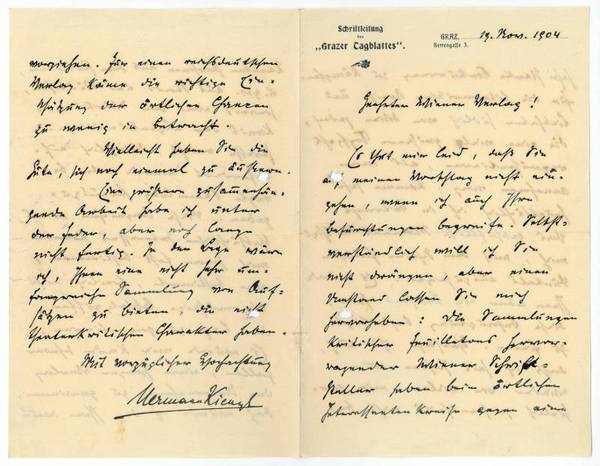 Schriftleitung
des
„Grazer Tagblattes".
GRAZ, 19. Nov. 1904
Herrengasse 3.
Geehrter Wiener Verlag!
Es thut mir leid, daß Sie
auf meinen Vorschlag nicht ein-
gehen, wenn ich auch Ihre
Befürchtungen begreife. Selbst-
verständlich will ich Sie
nicht drängen, aber einen
Umstand lassen Sie mich
hervorheben: Die Sammlungen
kritischer Feuilletons hervor-
ragender Wiener Schrift-
steller haben beim örtlichen
Interessentenkreise gegen eine
vorziehen. Für einen reichsdeutschen
Verlag käme die richtige Ein-
schätzung der örtlichen Chancen
zu wenig in betracht.
Vielleicht haben Sie die
Güte, sich noch einmal zu äußern.
Eine größere zusammenhän-
gende Arbeit habe ich unter
der Feder, aber noch lang
nicht fertig. In der Lage wäre
ich, Ihnen eine nicht sehr um-
fangreiche Sammlung von Auf-
sätzen zu bieten, die nicht
theaterkritischen Charakter haben.
Mit vorzüglicher Hochachtung
Hermann Kienzl